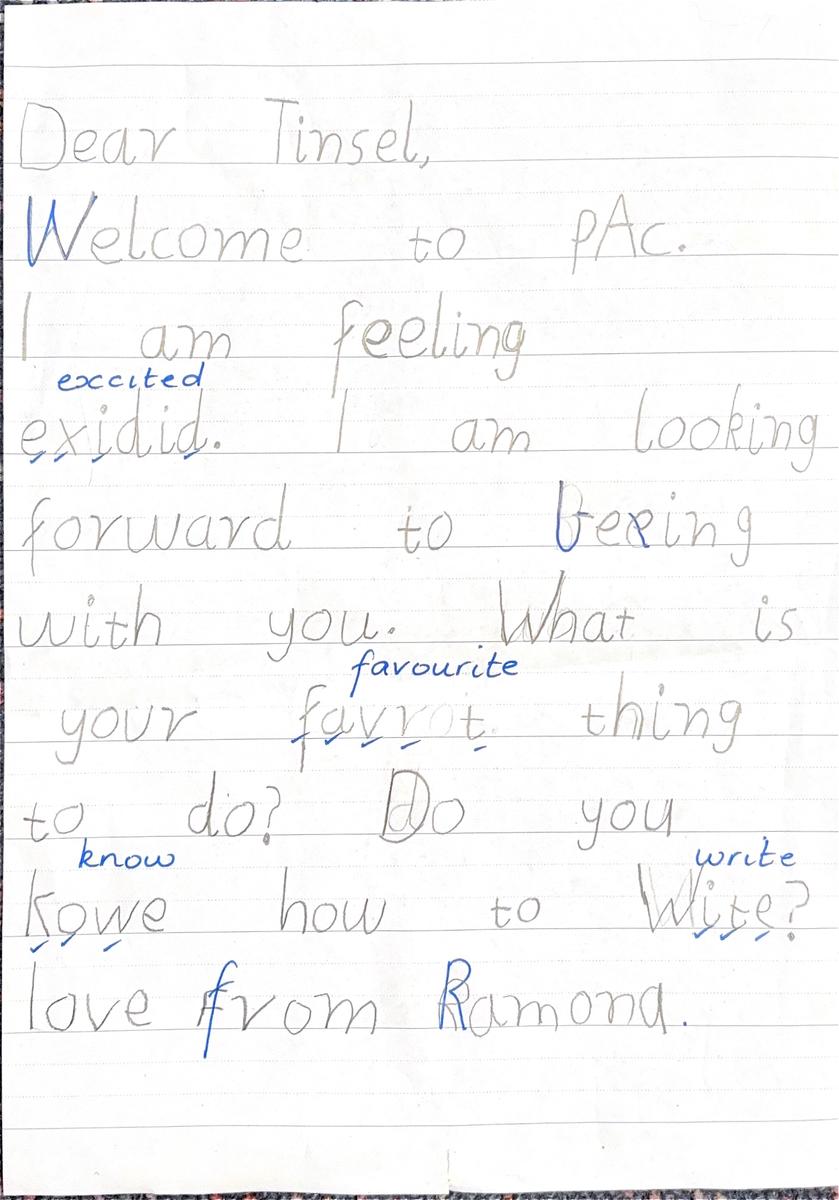 Dear Tinsel,
Welcome to pAc.
I am feeling
exccited
exidid. I am looking
forward to beeing
with you. What is
favourite
your favrot thing
to do? Do you
know write
kowe how to Wite?
love from Ramona.